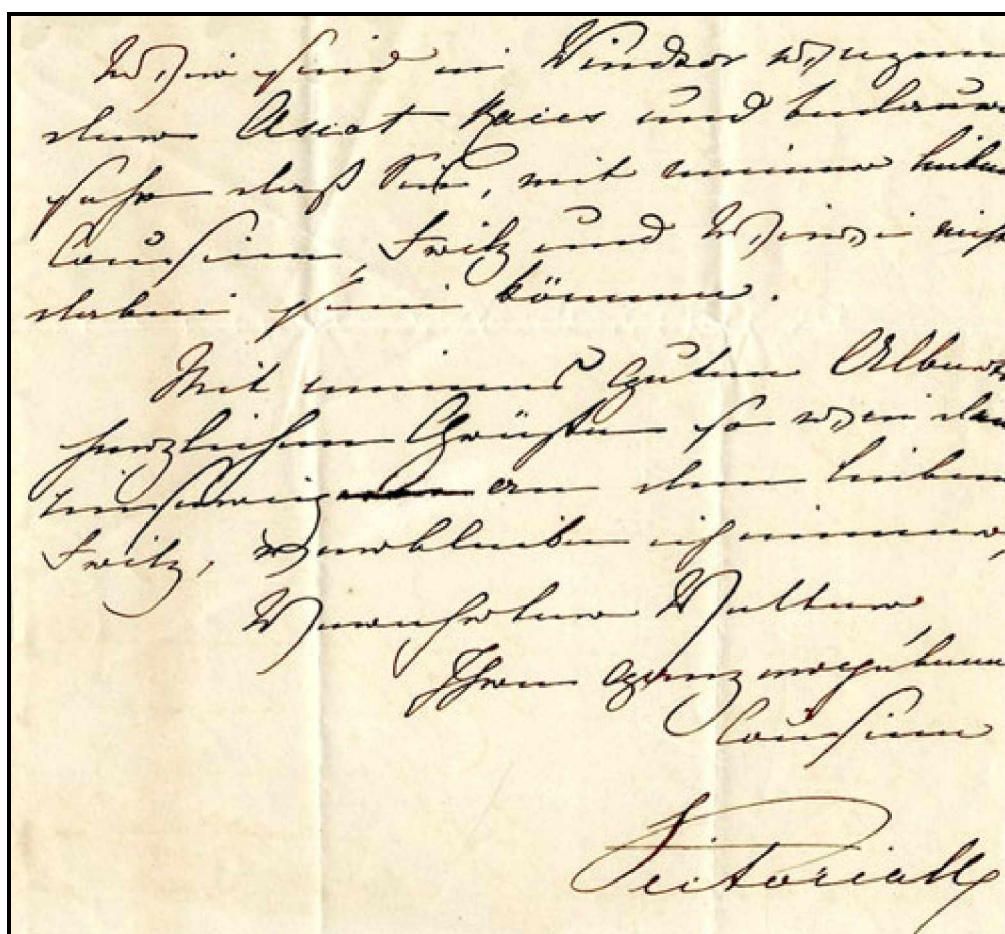 Wir sind in Windsor wegen
der Ascot Races und bedauern
sehr daß Sie, mit meiner lieben
Cousine, Fritz und nicht
dabei sein können.
Mit meines guten Alberts
herzlichen Grüßen so wie den
an den lieben
Fritz, verbleibe ich immer,
Verehrter Vetter,
Ihre ganz ergebene
Cousine
Victoria R